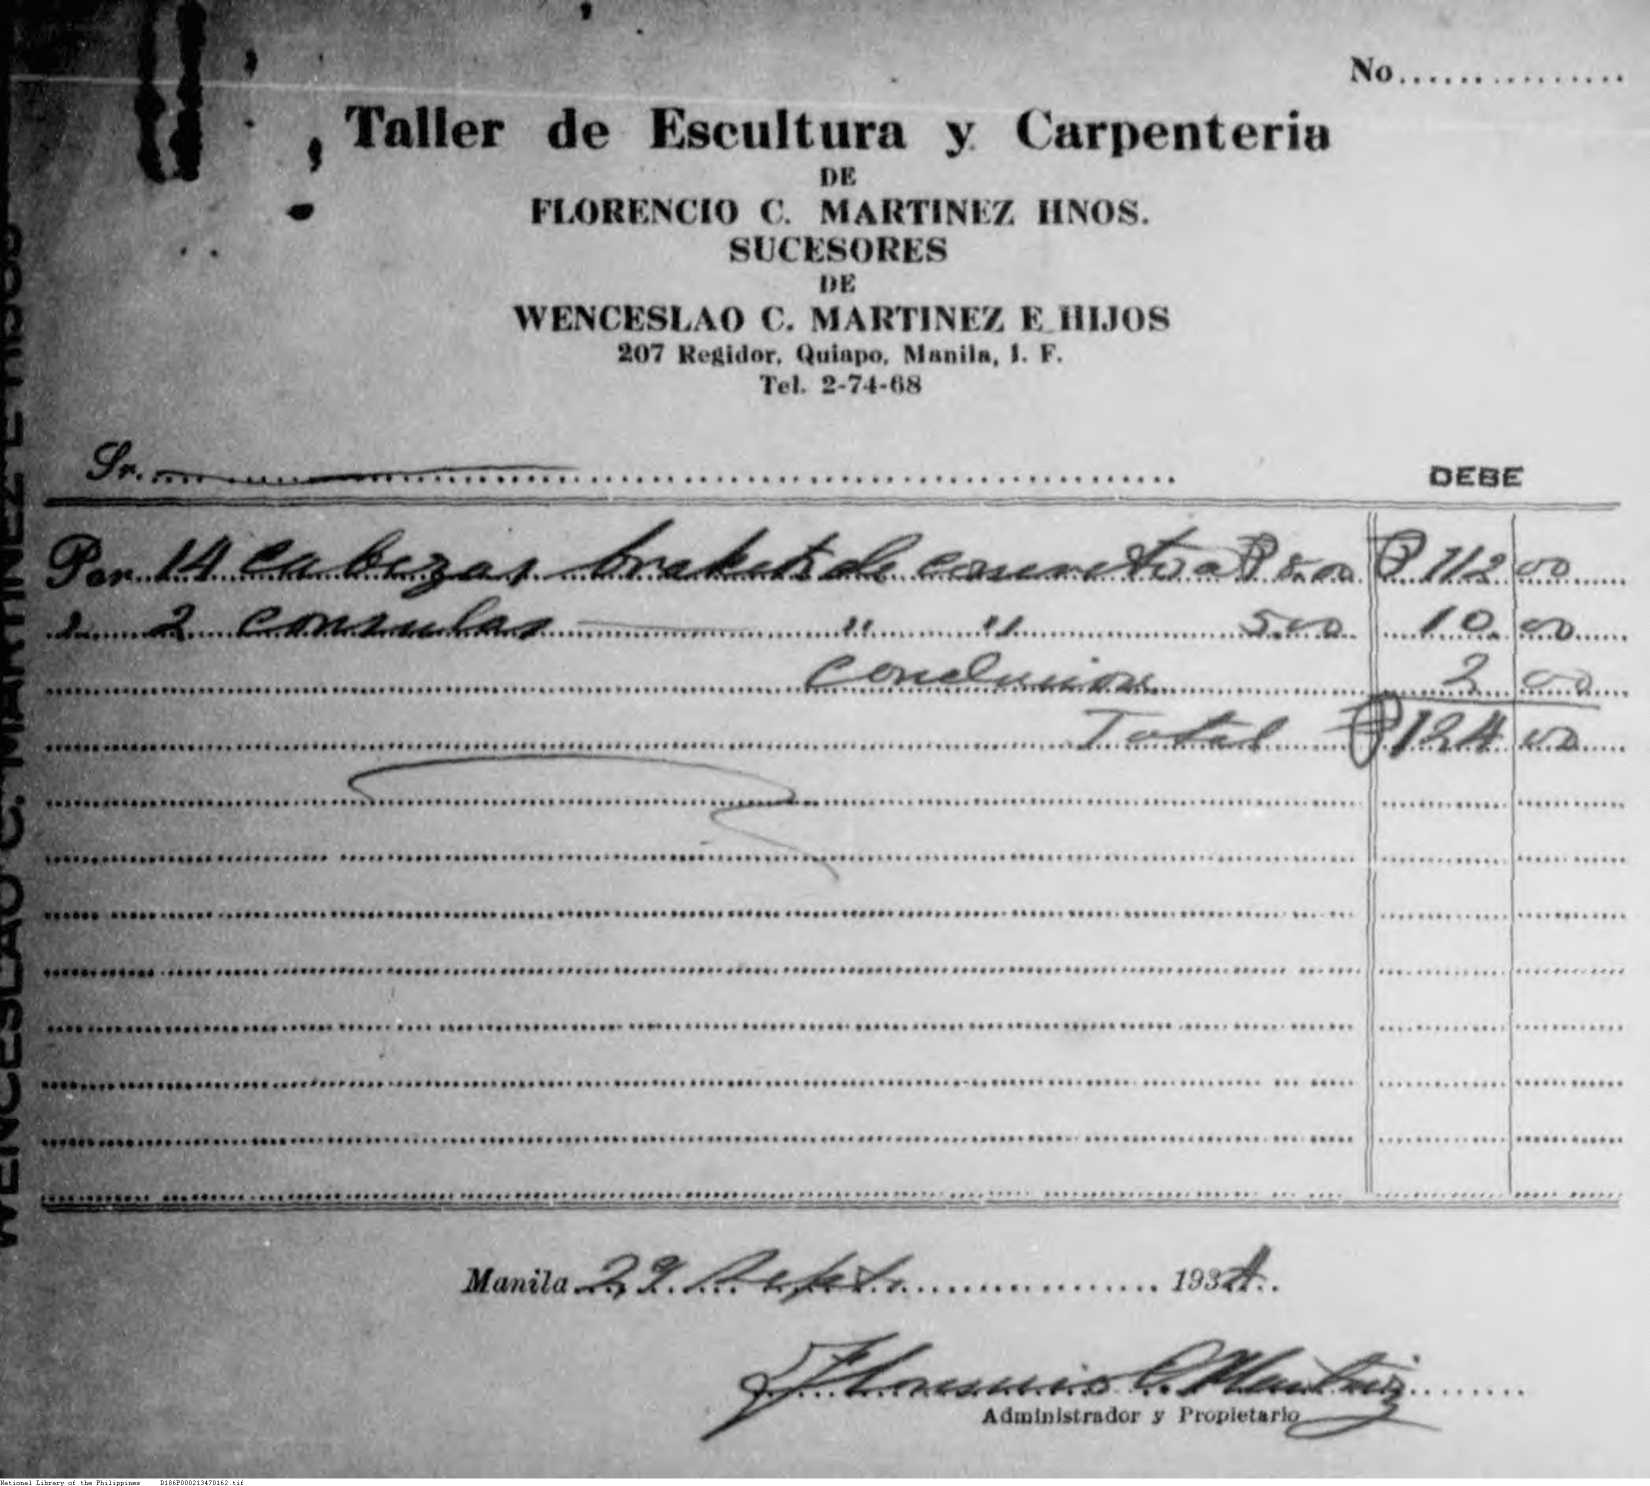 No...............
Taller de Escultura y Carpenteria
DE
FLORENCIO C. MARTINEZ HNOS.
SUCESORES
DE
WENCESLAO C. MARTINEZ E HIJOS
207 Regidor, Quiapo, Manila, I. F.
Tel. 2-74-68
Sr.
DEBE
Por 14 cabezas brakets de concreto a ₱8.00 ₱112 00
" 2 consulas " " 5.00 10. 00
Conclusion 2 00
Total ₱124 00
Manila 29 Sept. 1934.
Florencio C. Martinez
Administrador y Propietario
WENCESLAO C. MARTINEZ E HIJOS
National Library of the Philippines D186P000213470162.tif